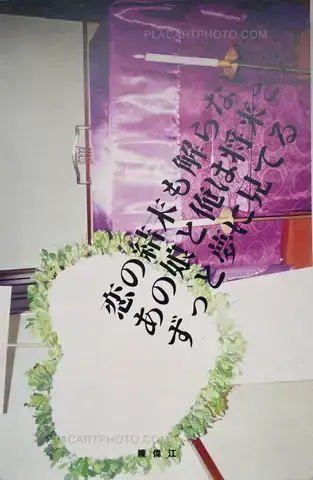 PLACARTPHOTO.COM
恋の結末も解らな
あの娘と俺は将来
ずっと夢に見てる
陳偉江
PLACARTPHOTO.COM